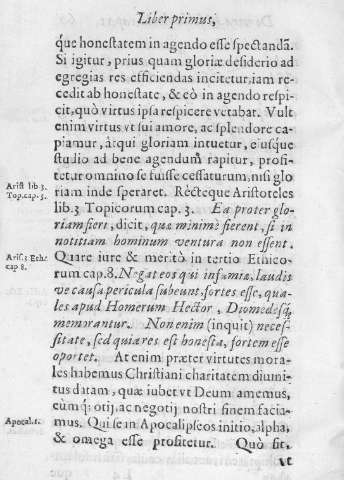 Liber primus,
que honestatem in agendo esse spectandā.
Si igitur, prius quam gloriæ desiderio ad
egregias res efficiendas incitetur, iam re-
cedit ab honestate, & eò in agendo respi-
cit, quò virtus ipsa respicere vetabat. Vult
enim virtus vt sui amore, ac splendore ca-
piamur, át qui gloriam intuetur, eiusque
studio ad bene agendum rapitur, profi-
tetur omnino se fuisse cessaturum, nisi glo-
Arist lib 3.
Top. cap. 3.
riam inde speraret. Recteque Aristoteles
lib. 3 Topicorum cap. 3. Ea proter glo-
riam fieri, dicit, quæ minimè fierent, si in
notitiam hominum ventura non essent.
Aris. 3 Eth.
cap 8.
Quare iure & meritò in tertio Ethico-
rum cap. 8. Negat eos qui infamiæ, laudis
ve causa pericula subeunt, fortes esse, qua-
les apud Homerum Hector, Diomedesq;
memorantur. Non enim (inquit) neces-
sitate, sed quia res est honesta, fortem esse
oportet. At enim præter virtutes mora-
les habemus Christiani charitatem diuini-
tus datam, quæ iubet vt Deum amemus,
eùmq; otij, ac negotij nostri finem facia-
Apocal. 1.
mus. Qui se in Apocalipseos initio, alpha,
& omega esse profitetur. Quò sit,
vt